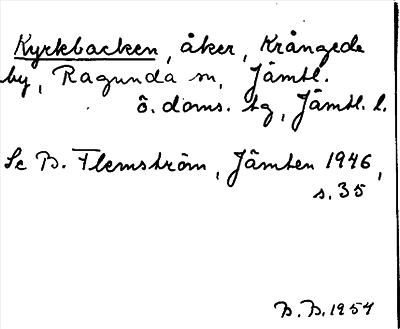 Kyrkbacken, åker, Krångede
by, Ragunda sn, Jämtl.
ö. doms. tg, Jämtl. l.
Se B. Flemström, Jämten 1946,
s. 35
B. B. 1954